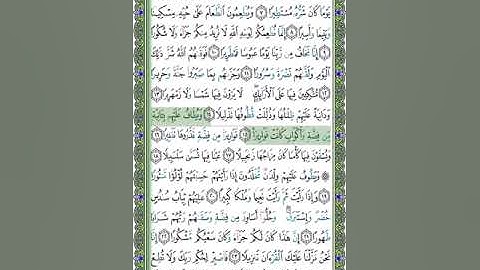 يَوْمًا كَانَ شَرُّهُۥ مُسْتَطِيرًا ٧ وَيُطْعِمُونَ ٱلطَّعَامَ عَلَىٰ حُبِّهِۦ مِسْكِينًا
وَيَتِيمًا وَأَسِيرًا ٨ إِنَّمَا نُطْعِمُكُمْ لِوَجْهِ ٱللَّهِ لَا نُرِيدُ مِنكُمْ جَزَآءً وَلَا شُكُورًا
٩ إِنَّا نَخَافُ مِن رَّبِّنَا يَوْمًا عَبُوسًا قَمْطَرِيرًا ١٠ فَوَقَىٰهُمُ ٱللَّهُ شَرَّ ذَٰلِكَ
ٱلْيَوْمِ وَلَقَّىٰهُمْ نَضْرَةً وَسُرُورًا ١١ وَجَزَىٰهُم بِمَا صَبَرُوا۟ جَنَّةً وَحَرِيرًا
١٢ مُّتَّكِـِٔينَ فِيهَا عَلَى ٱلْأَرَآئِكِ ۖ لَا يَرَوْنَ فِيهَا شَمْسًا وَلَا زَمْهَرِيرًا ١٣
وَدَانِيَةً عَلَيْهِمْ ظِلَٰلُهَا وَذُلِّلَتْ قُطُوفُهَا تَذْلِيلًا ١٤ وَيُطَافُ عَلَيْهِم بِـَٔانِيَةٍ
مِّن فِضَّةٍ وَأَكْوَابٍ كَانَتْ قَوَارِيرَا۠ ١٥ قَوَارِيرَا۟ مِن فِضَّةٍ قَدَّرُوهَا تَقْدِيرًا ١٦
وَيُسْقَوْنَ فِيهَا كَأْسًا كَانَ مِزَاجُهَا زَنجَبِيلًا ١٧ عَيْنًا فِيهَا تُسَمَّىٰ سَلْسَبِيلًا ١٨
۞ وَيَطُوفُ عَلَيْهِمْ وِلْدَٰنٌ مُّخَلَّدُونَ إِذَا رَأَيْتَهُمْ حَسِبْتَهُمْ لُؤْلُؤًا مَّنثُورًا
١٩ وَإِذَا رَأَيْتَ ثَمَّ رَأَيْتَ نَعِيمًا وَمُلْكًا كَبِيرًا ٢٠ عَٰلِيَهُمْ ثِيَابُ سُندُسٍ
خُضْرٌ وَإِسْتَبْرَقٌ ۖ وَحُلُّوٓا۟ أَسَاوِرَ مِن فِضَّةٍ وَسَقَىٰهُمْ رَبُّهُمْ شَرَابًا
طَهُورًا ٢١ إِنَّ هَٰذَا كَانَ لَكُمْ جَزَآءً وَكَانَ سَعْيُكُم مَّشْكُورًا ٢٢ إِنَّا
نَحْنُ نَزَّلْنَا عَلَيْكَ ٱلْقُرْءَانَ تَنزِيلًا ٢٣ فَٱصْبِرْ لِحُكْمِ رَبِّكَ وَلَا تُطِعْ